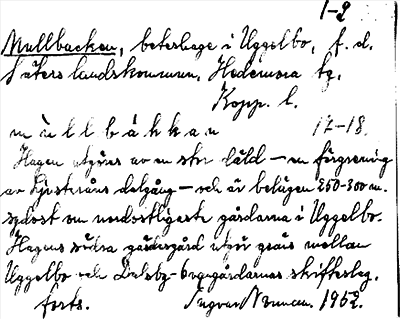 1-2
Mullbacken, beteshage i Uggelbo, f. d.
Säters landskommun, Hedemora tg.
Kopp. l.
mùllbákkan 17-18.
Hagen utgöres av en stor däld – en förgrening
av Ljusteråns dalgång – och är belägen 250-300 m.
sydost om nordostligaste gårdarna i Uggelbo.
Hagens södra gärdesgård utgör gräns mellan
Uggelbo och Dalsby- gårdarnas skifteslag.
forts. Ingvar Norman. 1952.